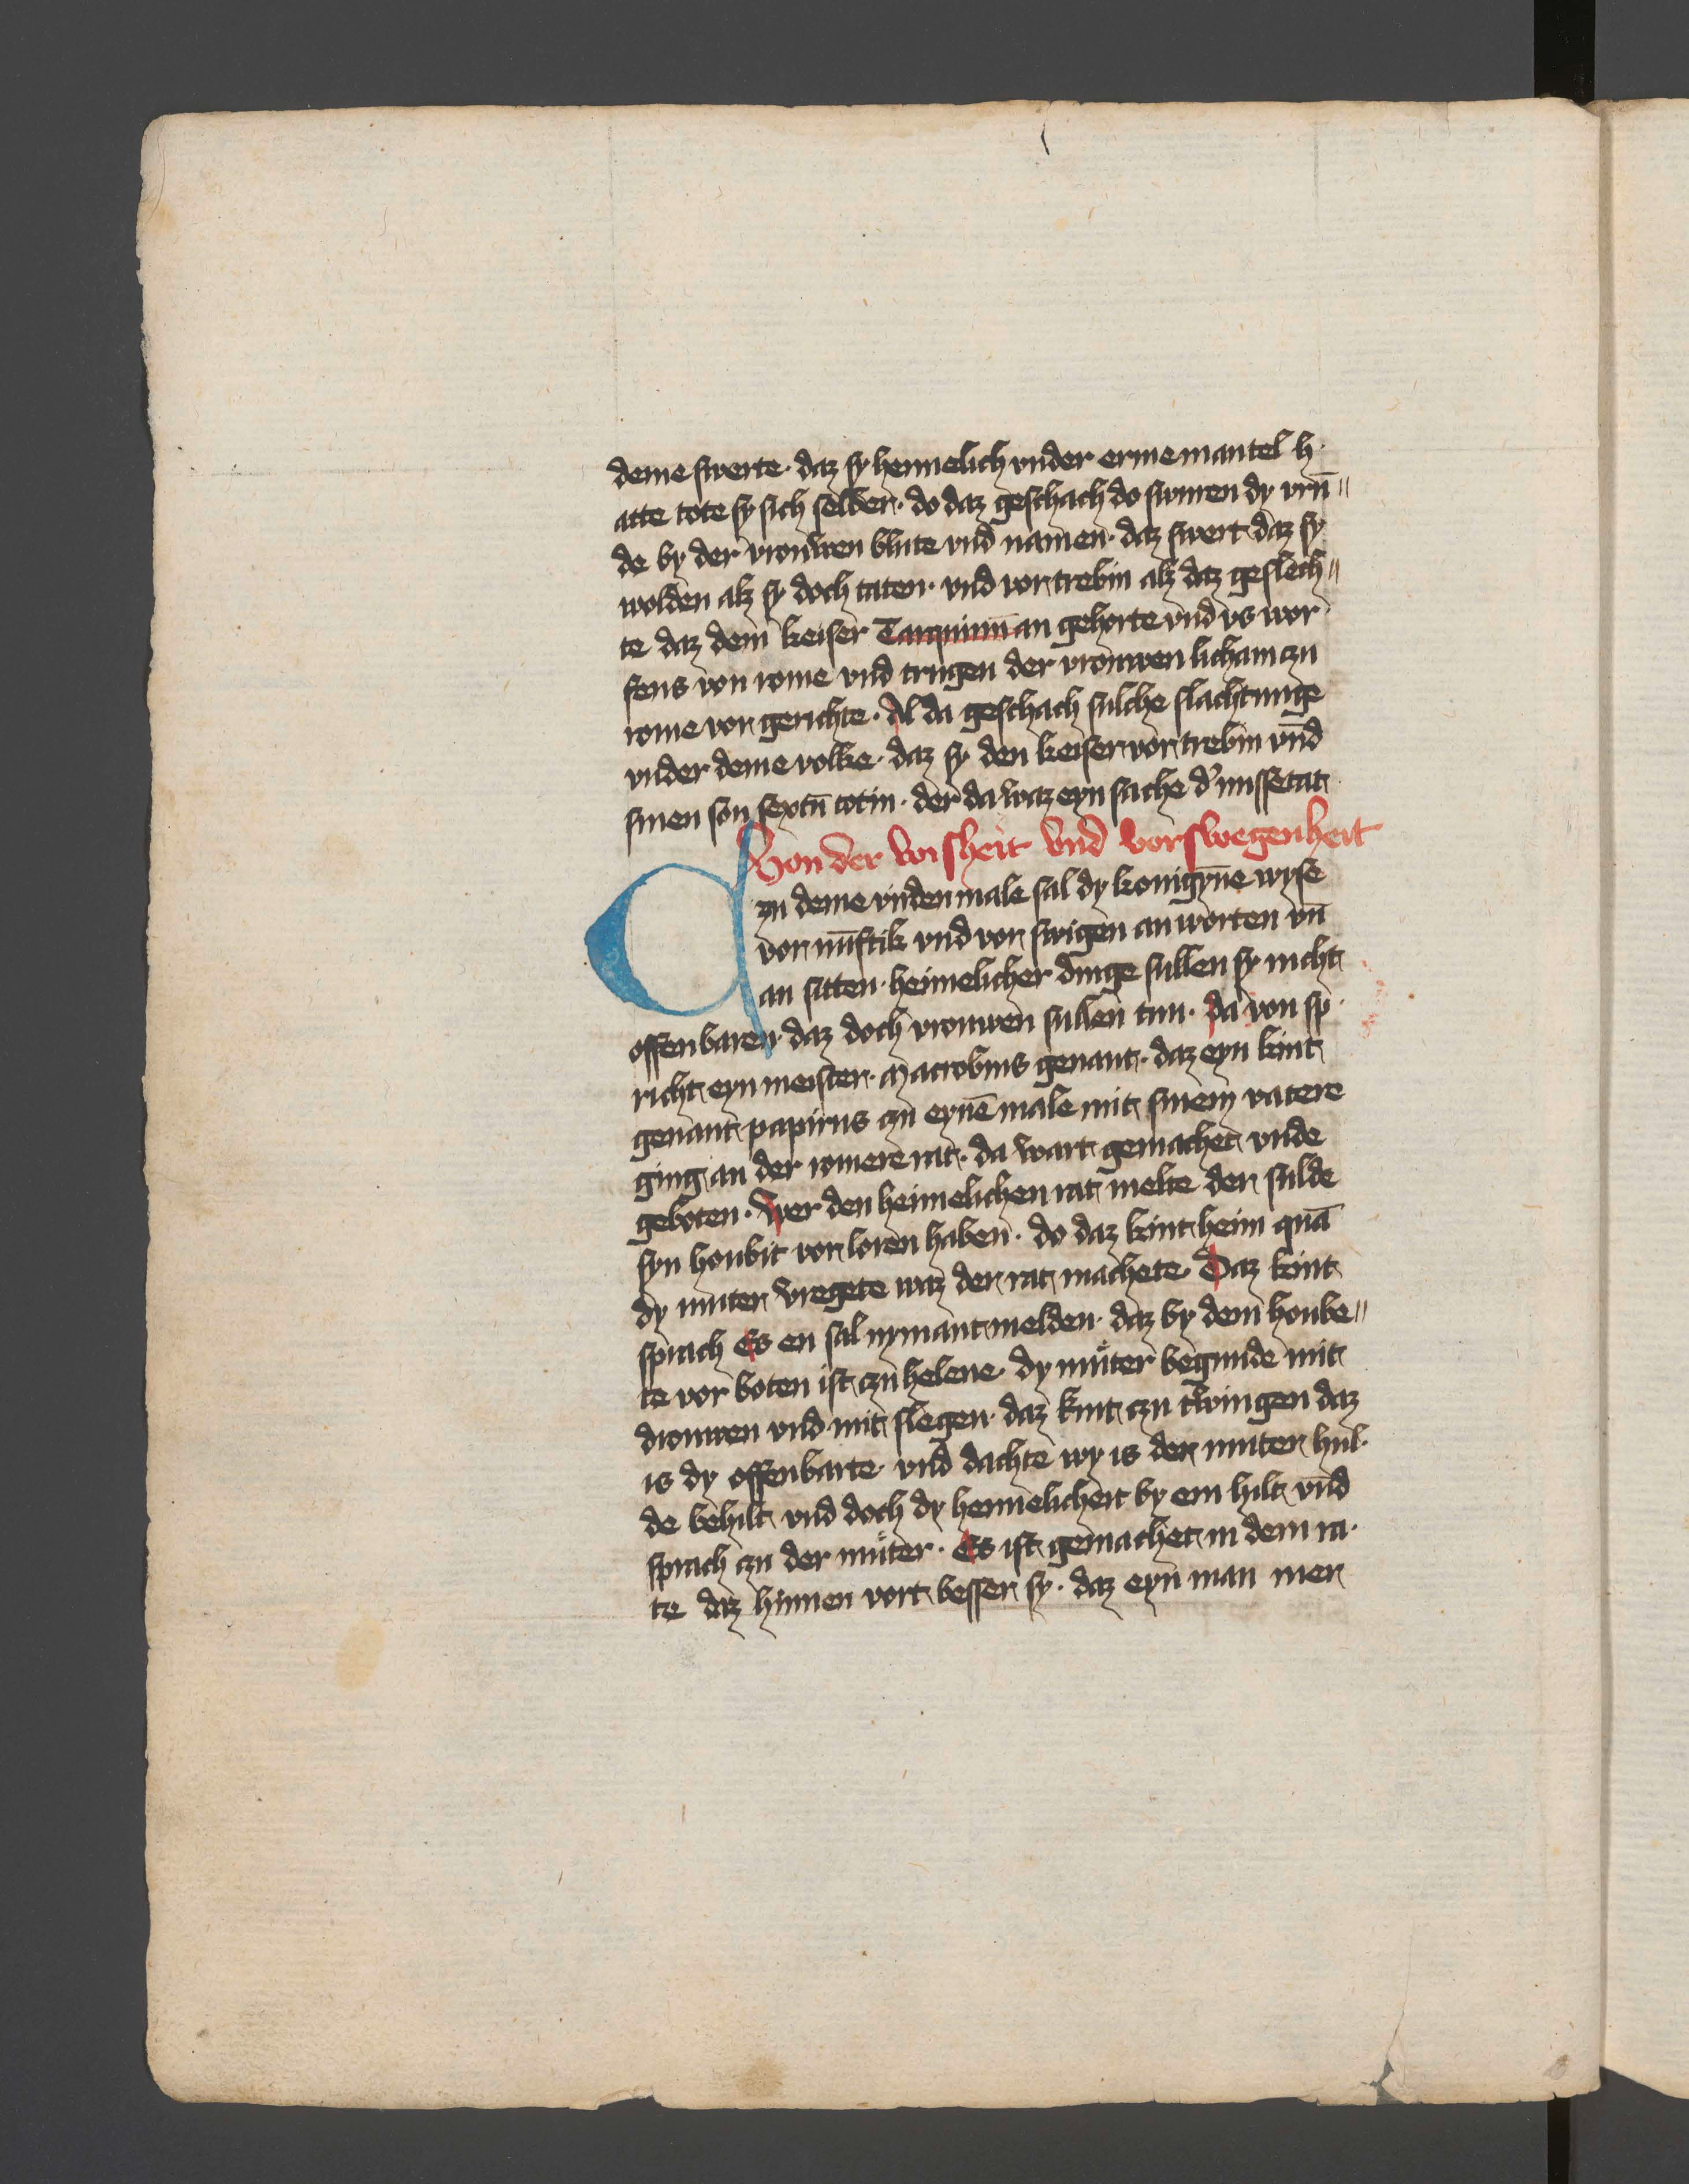 deme swerte · daz sy hemelich vnder erme mantel h·
atte tote sy sich selber · do daz geschach do swuren dy vrū⸗
de by der vrouwen blute vnd namen · daz swert daz sy
wolden alz sy doch taten · vnd vor trebin alz daz geslech⸗
te daz dem keiser Tarquinū an gehorte vnd vs wor
fens von rome vnd trugen der vrouwen licham czu
rome vor gerichte · Al da geschach sulche slachtunge
vnder deme volke · daz sy den keiser vor trebin vnd
sinen son sextū totin · der da waz eyn sache d' missetat
Von der wisheit vnd vorswegenheit
Czu deme virden male sal dy konigyne wyse
vor nūftik vnd vor swigen an worten vn̄
an sitten · heimelicher dinge sullen sy nicht
offenbaren · daz doch vrouwen sullen tun · da von sp·
richt eyn meister · Macrobius genant · daz eyn kint
genant papirus czu eynē male mit sinem vatere
ging an der romere rat · da wart gemachet vnde
geboten · Wer den heimelichen rat melte der sulde
syn houbit vor loren haben · do daz kint heim quā
dy muter vregete waz der rat machete · Daz kint
sprach Es en sal nymant melden · daz by dem hoube⸗
te vor boten ist czu helene · dy muter begunde mit
drouwen vnd mit slegen · daz kint czu twingen daz
is dy offenbarte · vnd dachte wy is der muter hul·
de behilt vnd doch dy hemelicheit by em hilt vnd
sprach czu der muter · Es ist gemachet in dem ra·
te daz hinnen vort besser sy · daz eyn man mer